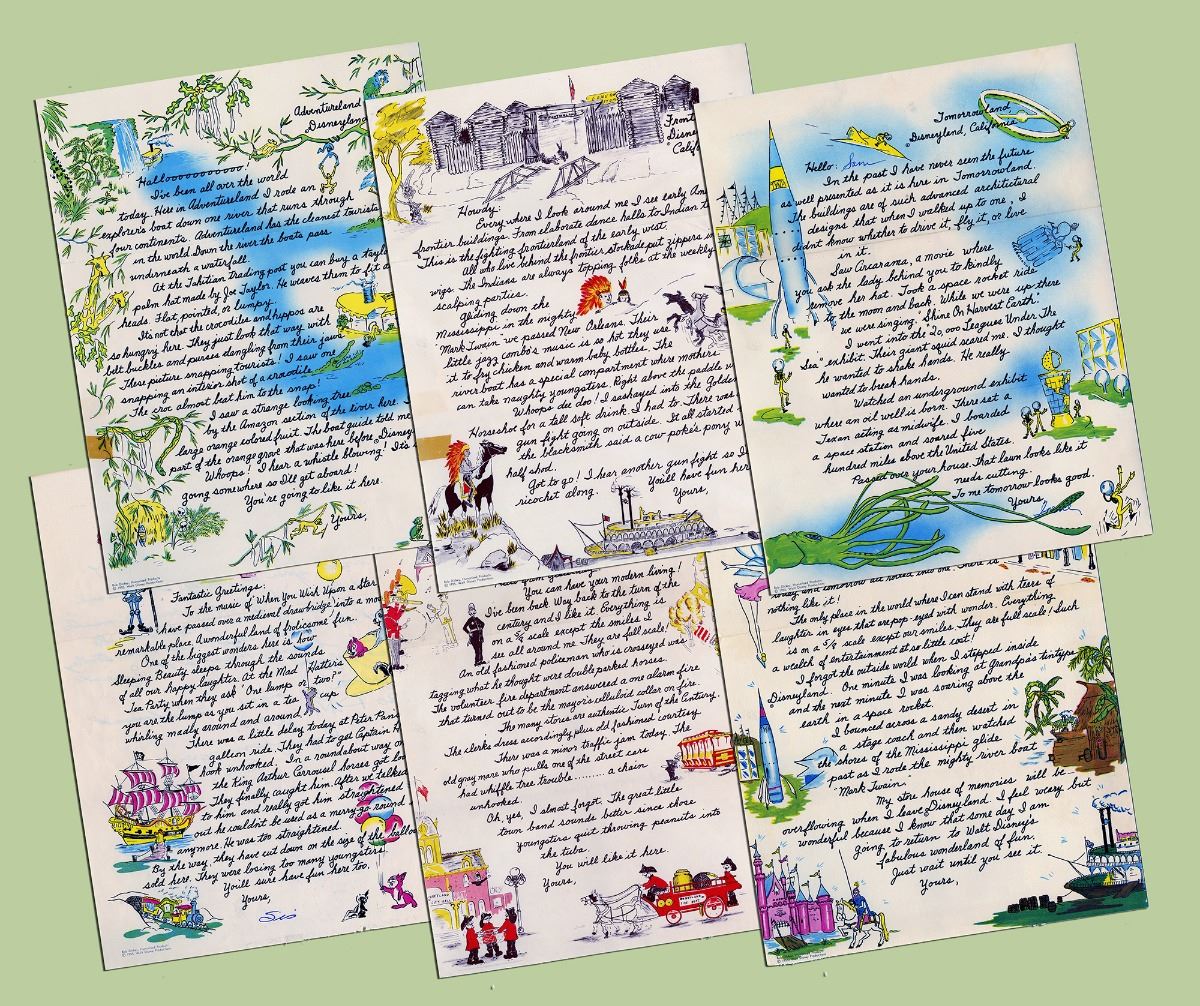 Adventureland
Disneyland
Halloooooooooooo!
I've been all over the world
today. Here in Adventureland I rode an
explorer's boat down one river that runs through
four continents. Adventureland has the cleanest tourists
in the world. Down the river the boats pass
underneath a waterfall.
At the Tahitian Trading post you can buy a
palm hat made by Joe Taylor. He weaves them to fit a
heads. Flat, pointed, or lumpy.
It's not that the crocodiles and hippos are
so hungry here. They just look that way with
belt buckles and purses dangling from their jaws
These picture snapping tourists! I saw one
snapping an interior shot of a crocodile.
The croc almost beat him to the snap!
I saw a strange looking tree
by the Amazon section of the river here.
large orange colored fruit. The boat guide told me
part of the orange grove that was here before Disney
Whoops! I hear a whistle blowing! It's
going somewhere so I'll get aboard!
You're going to like it here.
Yours,
Front
Disne
Calif
Howdy:
Every where I look around me I see early Am
frontier buildings. From elaborate dance halls to Indian
This is the fighting frontierland of the early west.
All who live behind the frontier stockade put zippers in
wigs. The Indians are always topping folks at the weekly
scalping parties.
Gliding down the
Mississippi in the mighty
"Mark Twain" we passed New Orleans. Their
little jazz combo's music is so hot they use
it to fry chicken and warm baby bottles. The
river boat has a special compartment where mothers
can take naughty youngsters. Right above the paddle
Whoops dee doo! I sashayed into the Golden
Horseshoe for a tall soft drink I had to. There was
gun fight going on outside. It all started
the blacksmith said a cow poke's pony
half shod.
Got to go! I hear another gun fight so I
ricochet along. You'll have fun her
Yours,
Tomorrowland
Disneyland, California
Hello: Sam
In the past I have never seen the future
as well presented as it is here in Tomorrowland.
The buildings are of such advanced architectural
designs that when I walked up to one, I
didnt know whether to drive it, fly it, or live
in it.
Saw Circarama, a movie where
you ask the lady behind you to kindly
remove her hat. Took a space rocket ride
to the moon and back. While we were up there
we were singing, "Shine On Harvest Earth."
I went into the "20,000 Leagues Under The
Sea" exhibit. Their giant squid scared me. I thought
he wanted to shake hands. He really
wanted to break hands.
Watched an underground exhibit
where an oil well is born. There set a
Texan acting as midwife. I boarded
a space station and soared five
hundred miles above the United States.
Passed over your house. That lawn looks like it
needs cutting.
To me tomorrow looks good.
Yours,
Fantastic Greetings:
To the music of "When You Wish Upon a Star
have passed over a medieval drawbridge into a mo
remarkable place. A wonderful land of frolicsome fun.
One of the biggest wonders here is how
Sleeping Beauty sleeps through the sounds
of all our happy laughter. At the Mad Hatter's
Tea Party when they ask "One lump or two?"
you are the lump as you sit in a tea cup
whirling madly around and around.
There was a little delay today at Peter Pan
galleon ride. They had to get Captain H
hook unhooked. In a roundabout way o
the King Arthur Carrousel horses got loo
They finally caught him. After we talked
to him and really got him straightened
out he couldn't be used as a merry go round
anymore. He was too straightened.
By the way, they have cut down on the size of the balloo
sold here. They were losing too many youngsters.
You'll sure have fun here too.
Yours,
Sis
You can have your modern living!
I've been back Way back to the turn of the
century and I like it. Everything is
on a 5/8 scale except the smiles I
see all around me. They are full scale!
An old fashioned policeman who is crosseyed was
tagging what he thought were double parked horses.
The volunteer fire department answered a one alarm fire
that turned out to be the mayor's celluloid collar on fire.
The many stores are authentic Turn of the Century.
The clerks dress accordingly plus old fashioned courtesy.
There was a minor traffic jam today. The
old gray mare who pulls one of the street cars
had whiffle tree trouble......... a chain
unhooked.
Oh, yes, I almost forgot. The great little
town band sounds better since those
youngsters quit throwing peanuts into
the tuba.
You will like it here.
Yours,
today and tomorrow are rolled into one. There is
nothing like it!
The only place in the world where I can stand with tears of
laughter in eyes that are pop-eyed with wonder. Everything
is on a 5/8 scale except our smiles. They are full scale! Such
a wealth of entertainment at so little cost!
I forgot the outside world when I stepped inside
Disneyland. One minute I was looking at Grandpa's tintype
and the next minute I was soaring above the
earth in a space rocket.
I bounced across a sandy desert in
a stage coach and then watched
the shores of the Mississippi glide
past as I rode the mighty river boat
"Mark Twain."
My store house of memories will be
overflowing when I leave Disneyland. I feel weary but
wonderful because I know that some day I am
going to return to Walt Disney's
fabulous wonderland of fun.
Just wait until you see it.
Yours,